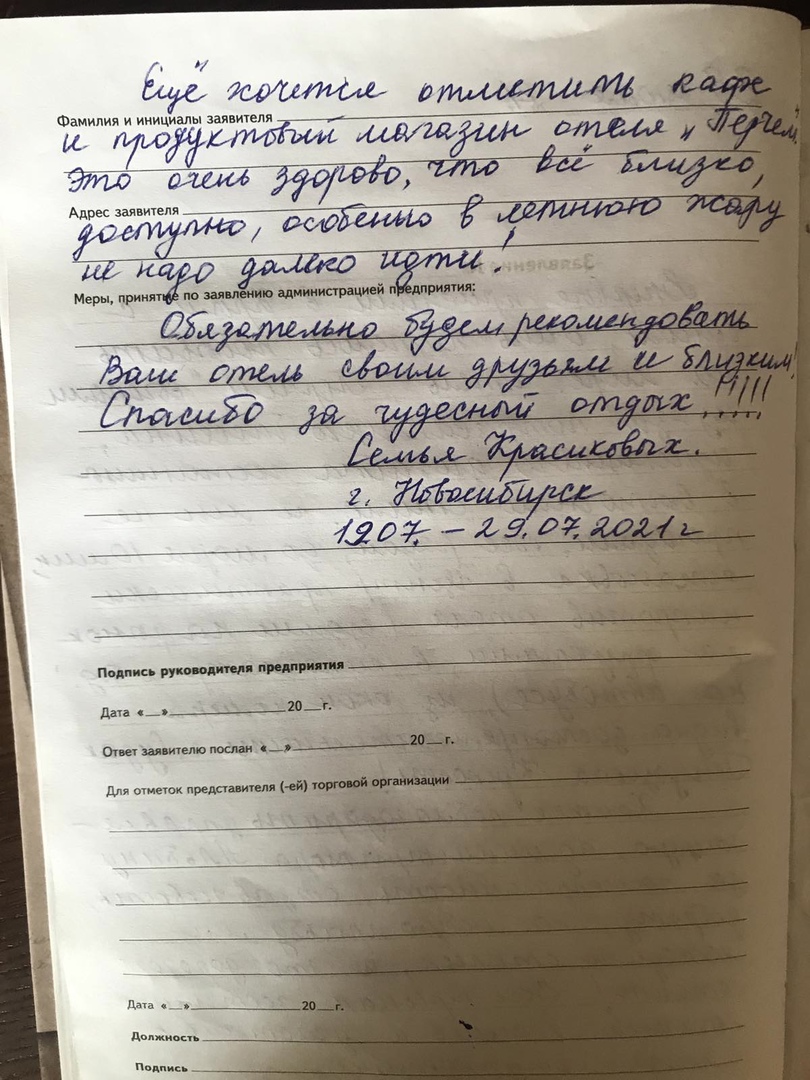 Ещё хочется отметить кафе
Фамилия и инициалы заявителя
и продуктовый магазин отеля „Перчем".
Это очень здорово, что всё близко,
Адрес заявителя
доступно, особенно в летнюю жару
не надо далеко идти!
Меры, принятые по заявлению администрацией предприятия:
Обязательно будем рекомендовать
Ваш отель своим друзьям и близким!
Спасибо за чудесный отдых!!!!!
Семья Красиковых.
г. Новосибирск
19.07. – 29.07.2021г
Подпись руководителя предприятия
Дата «__»________ 20__г.
Ответ заявителю послан «__»________ 20__г.
Для отметок представителя (-ей) торговой организации
Дата «__»________ 20__г.
Должность
Подпись